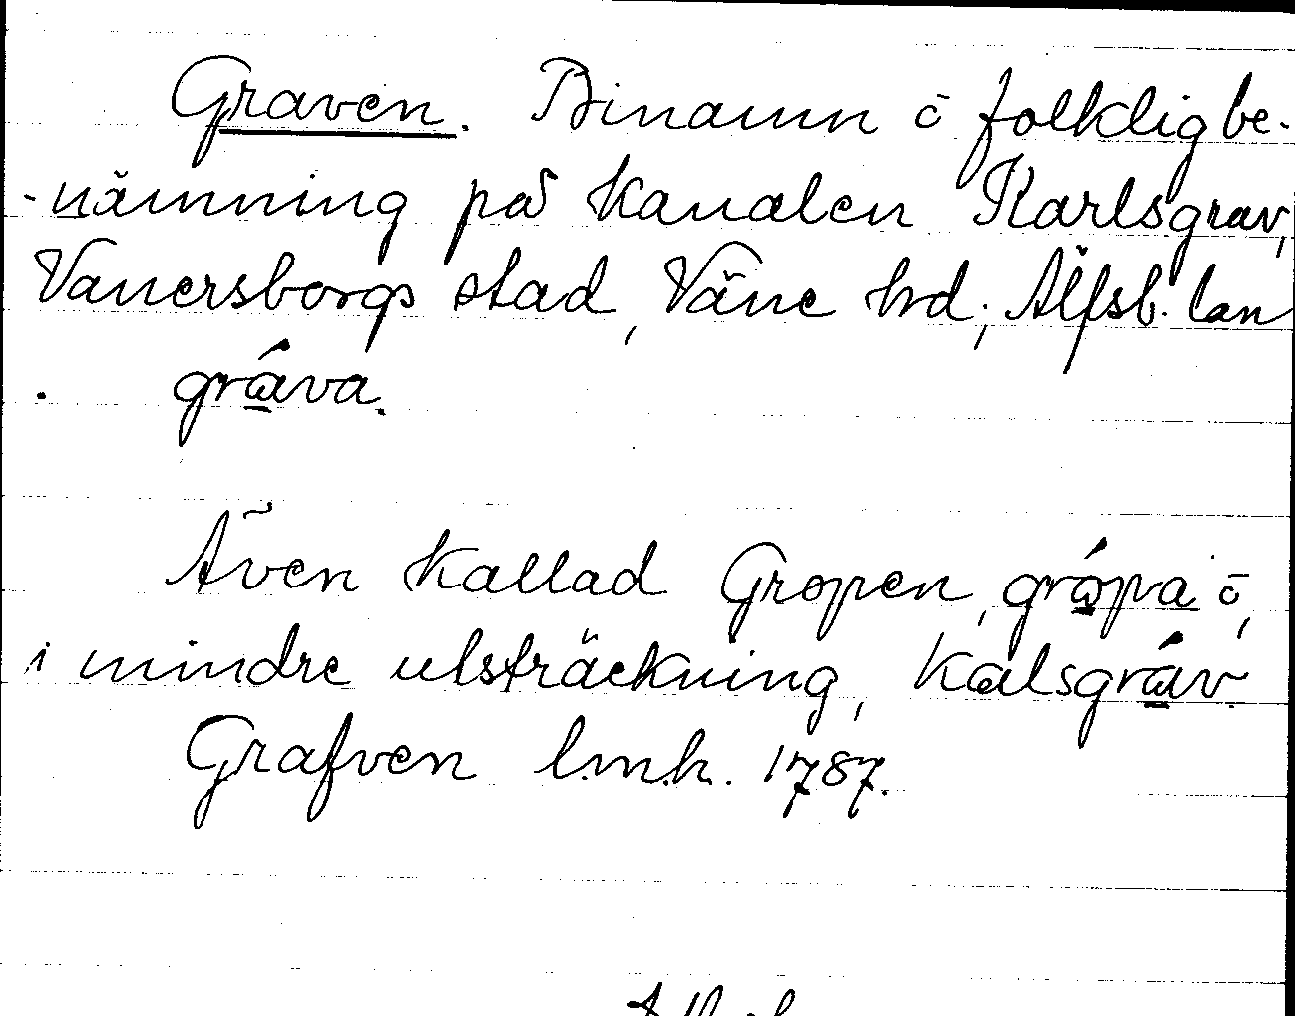 Graven. Binamn ō folklig be-
-nämning på kanalen Karlsgrav,
Vanersborgs stad, Väne hrd; Älfsb. lan
gráva.
Även kallad Gropen, grópa ō,
i mindre utsträckning, Kalsgráv.
Grafven l.m.k. 1787.